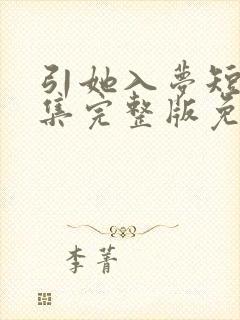 引她入夢短
集完整版免
李菁